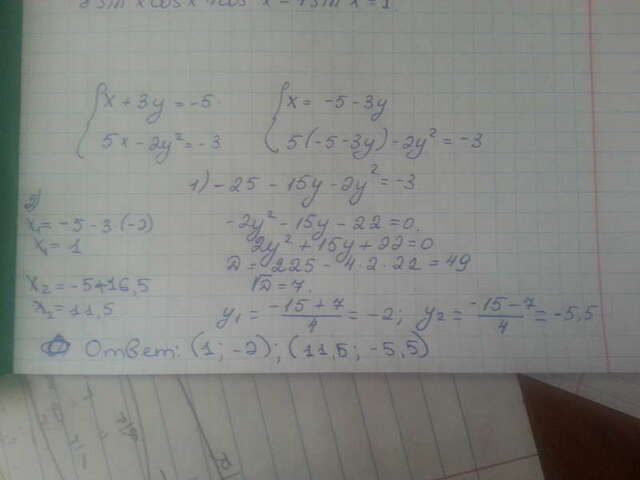 { x + 3y = -5 { x = -5 - 3y
5x - 2y² = -3 5(-5-3y) - 2y² = -3
1) -25 - 15y - 2y² = -3
2)
x₁ = -5 - 3·(-2) -2y² - 15y - 22 = 0.
x₁ = 1 2y² + 15y + 22 = 0
D = 225 - 4·2·22 = 49
x₂ = -5+16,5 √D = 7.
x₂ = 11,5 y₁ = (-15+7)/4 = -2; y₂ = (-15-7)/4 = -5,5
Ответ: (1; -2); (11,5; -5,5)